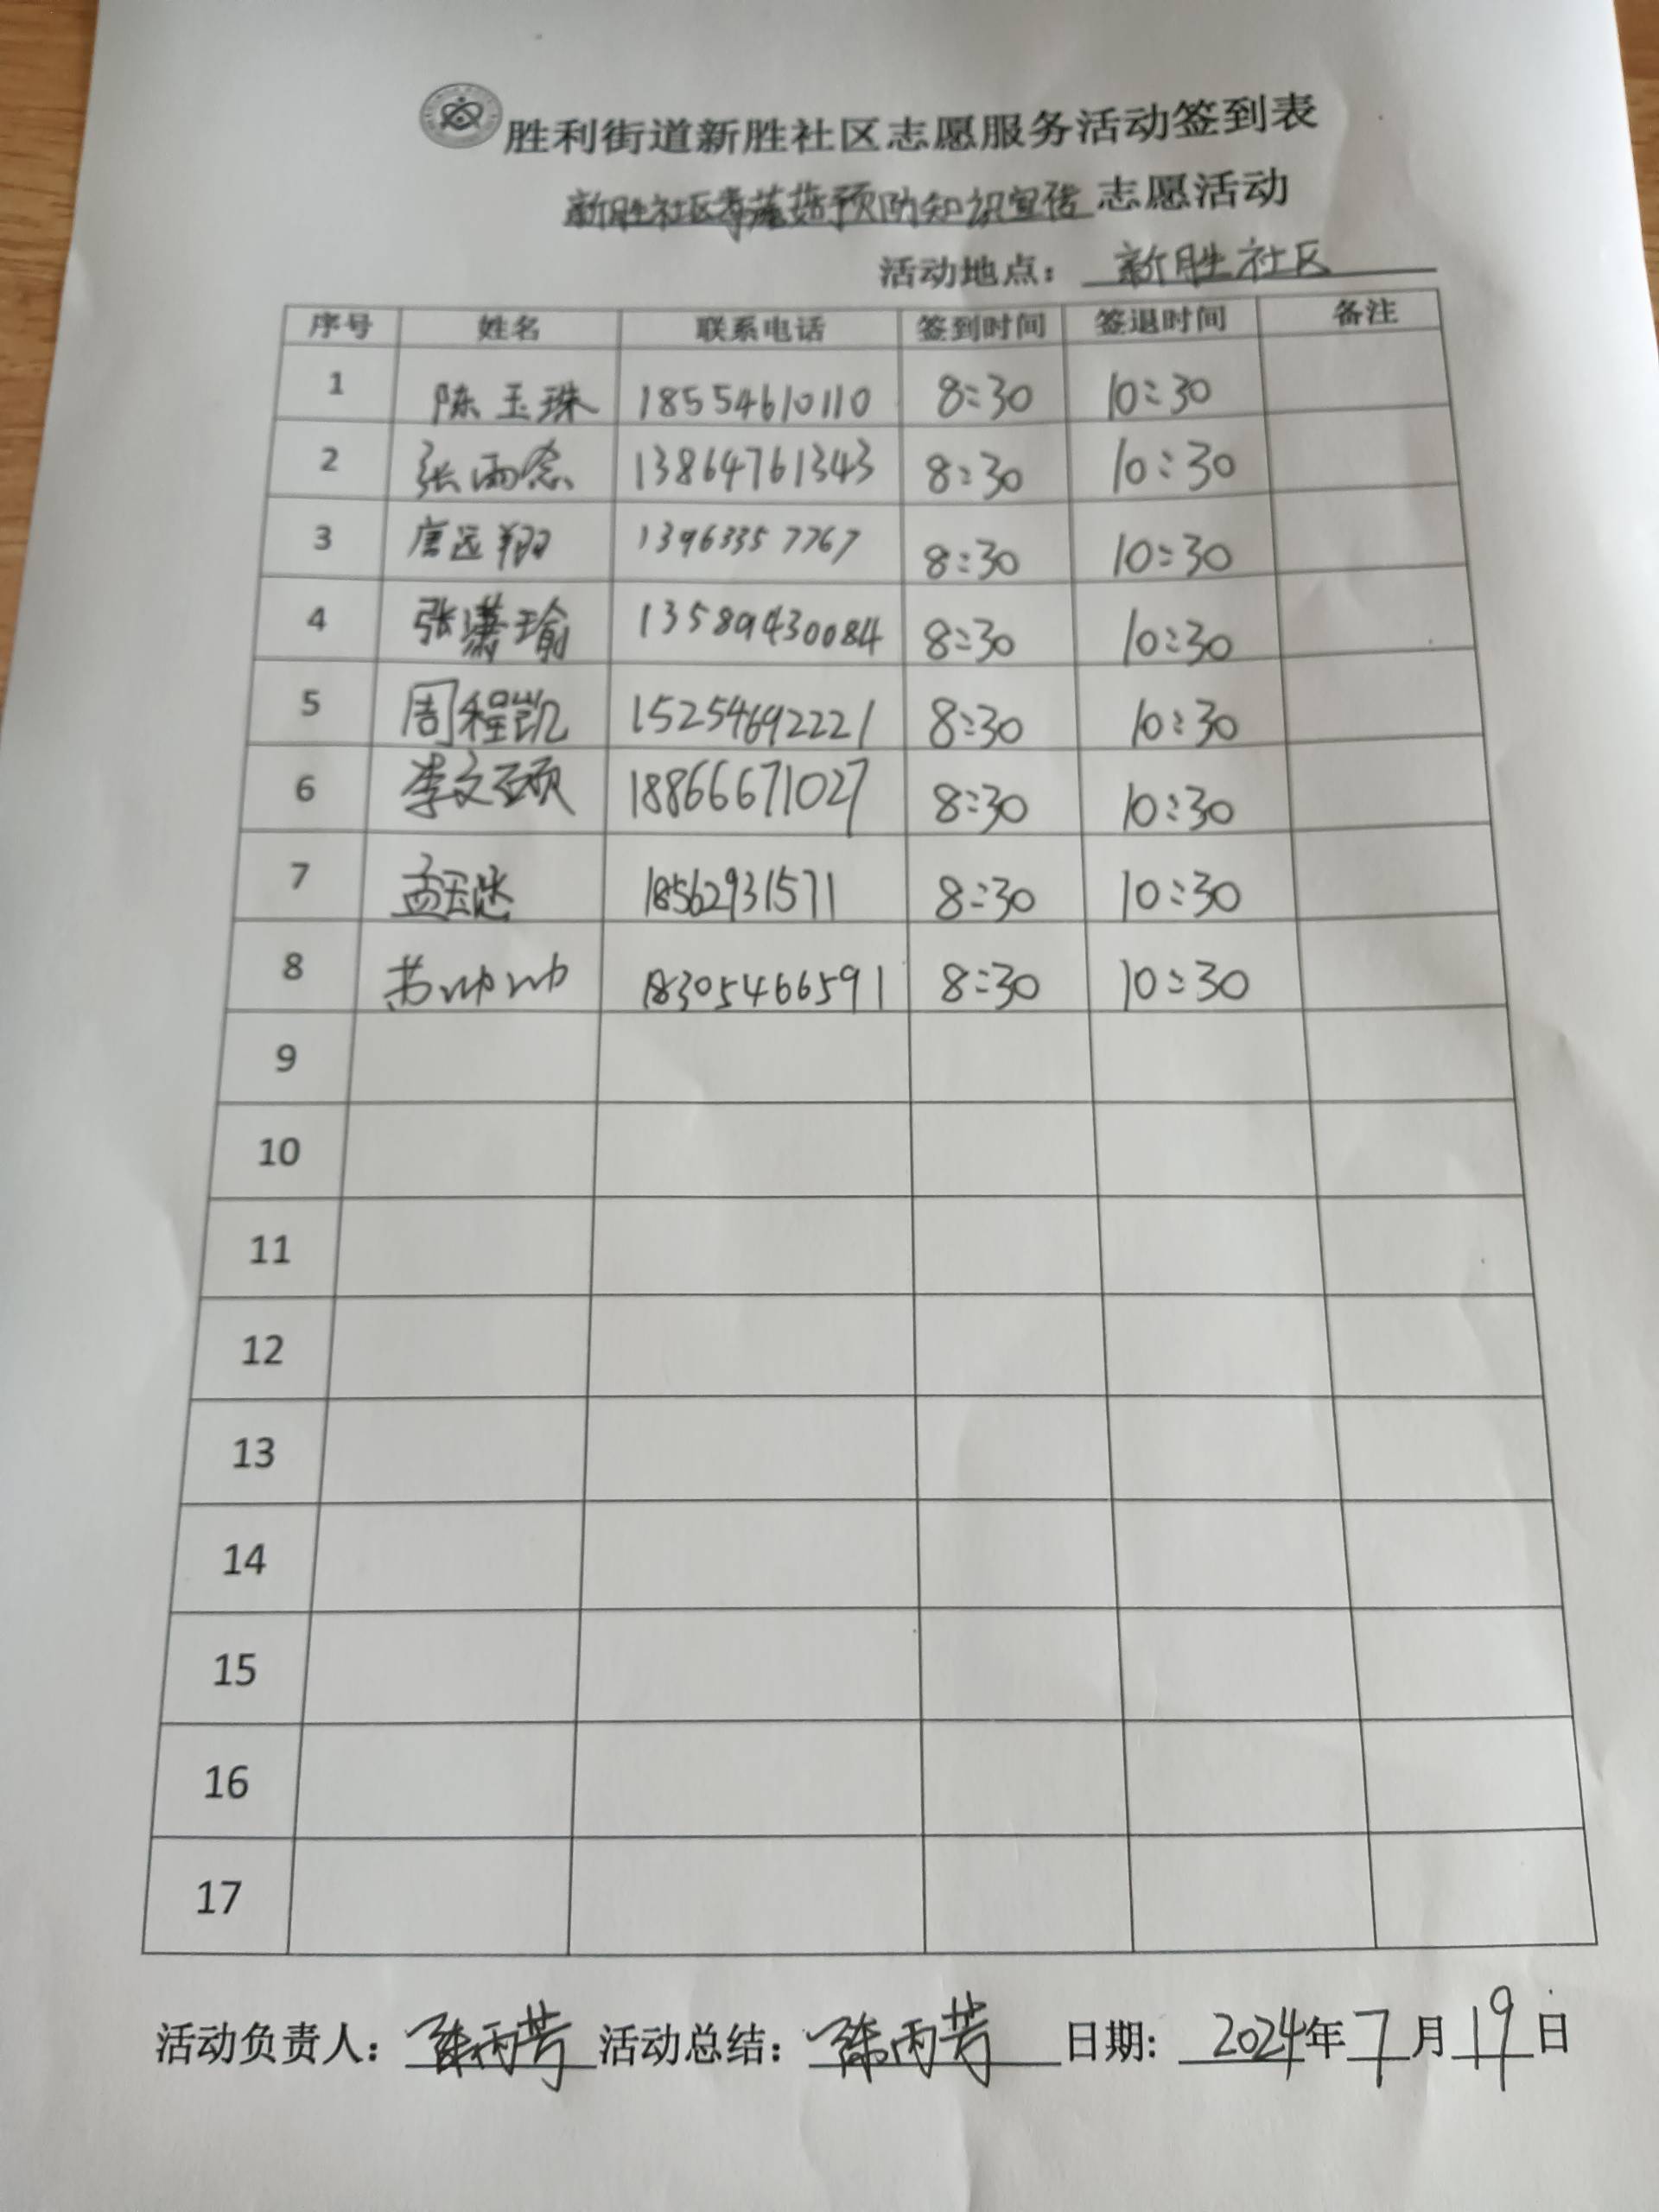 胜利街道新胜社区志愿服务活动签到表
新胜社区毒蘑菇预防知识宣传志愿活动
活动地点： 新胜社区
序号 姓名 联系电话 签到时间 签退时间 备注
1 陈玉珠 18554610110 8:30 10:30
2 张雨念 13864761343 8:30 10:30
3 唐远翔 13963357767 8:30 10:30
4 张潇瑜 13589430084 8:30 10:30
5 周程凯 15254692221 8:30 10:30
6 李文硕 18866671027 8:30 10:30
7 孟 18562931571 8:30 10:30
8 苏帅帅 18305466591 8:30 10:30
9
10
11
12
13
14
15
16
17
活动负责人： 陈雨芳 活动总结： 陈雨芳 日期: 2024年7月19日